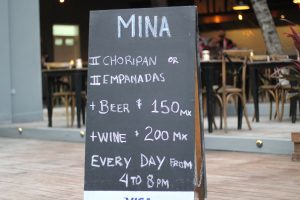 MINA
II CHORIPAN OR
II EMPANADAS
+ BEER $ 150 MX
+ WINE $ 200 MX
EVERY DAY FROM
4 TO 8 PM
MINA